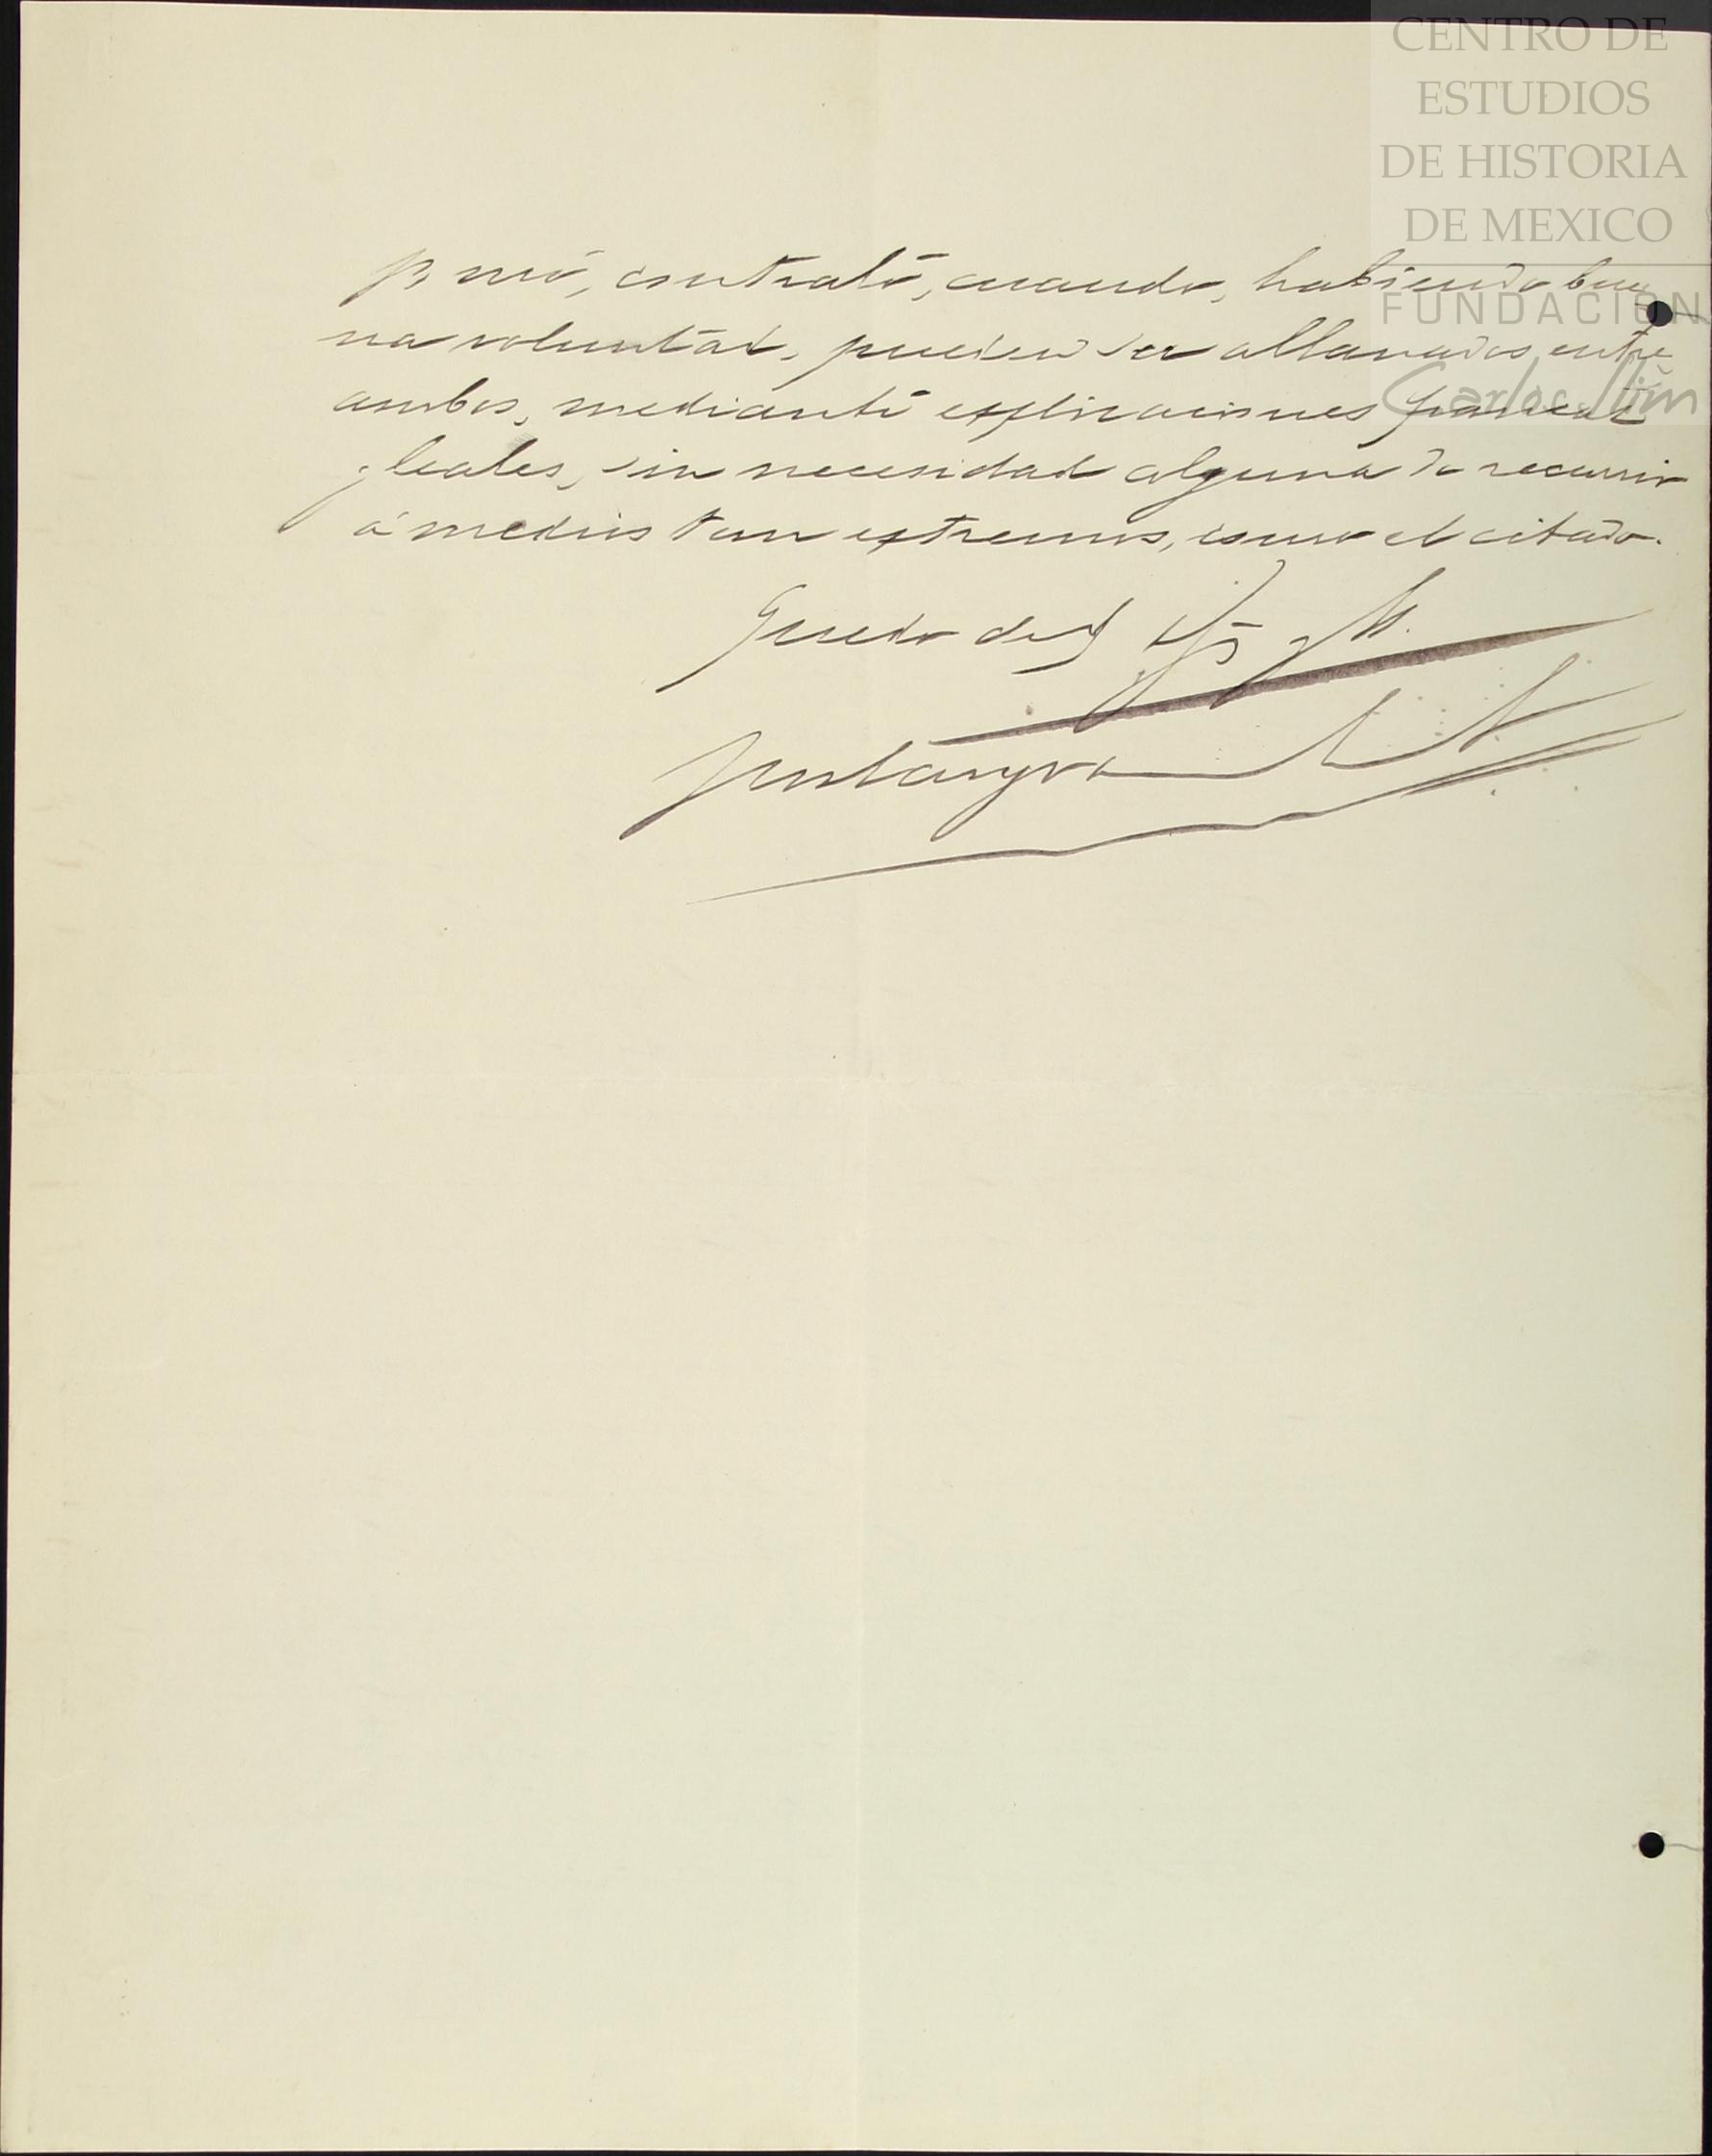 CENTRO DE
ESTUDIOS
DE HISTORIA
DE MEXICO
FUNDACIÓN
Carlos Slim
cuando, habiendo bue
na voluntad, pueden ser allanados entre
ambos, mediante explicaciones francas
y leales, sin necesidad alguna de recurrir
á medios tan extremos, como el citado.
Quedo de